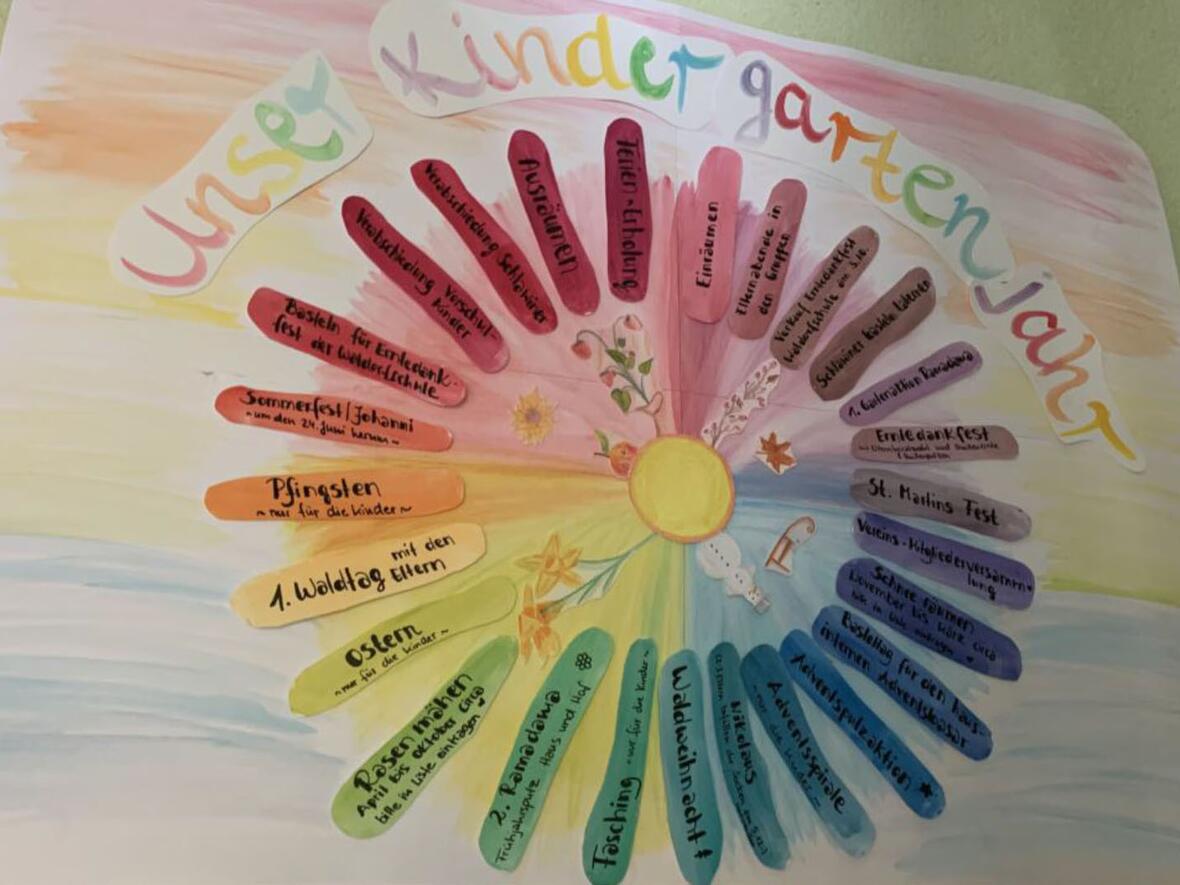 Unser
Kindergartenjahr
Einräumen
Elternabende in
den Gruppen
Verkauf Erntedankfest
Waldorfschule am 3.10.
Schlawiner basteln Laternen
1. Gartenaktion Ramadama
Erntedankfest
St. Martins Fest
Vereins-Mitgliederversamm-
lung
Schnee räumen
November bis März circa
bitte in Liste eintragen
Basteltag für den haus-
internen Adventsbasar
Adventsputzaktion
Adventsspirale
~ nur die Kinder ~
Nikolaus
Waldweihnacht!
Fasching ~ nur für die Kinder ~
2. Ramadama
Frühjahrsputz Haus und Hof
Rasenmähen
April bis Oktober circa
bitte in Liste eintragen
Ostern
~ nur für die Kinder ~
1. Waldtag mit den
Eltern
Pfingsten
~ nur für die Kinder ~
Sommerfest/Johanni
~ um den 24. Juni herum ~
Basteln für Erntedank-
fest der Waldorfschule
Verabschiedung Vorschul-
kinder
Verabschiedung Schlawiner
Ausräumen
Ferien-Erholung